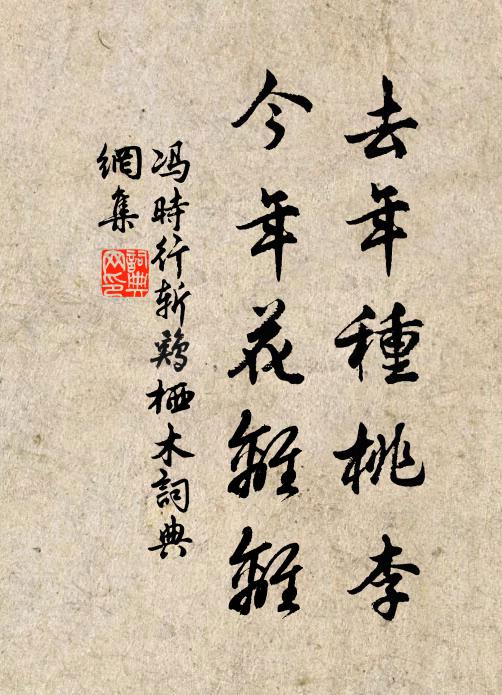 去年種桃李
今年花離離
冯時行斩鷄栖木詞典
網集
詞典网印